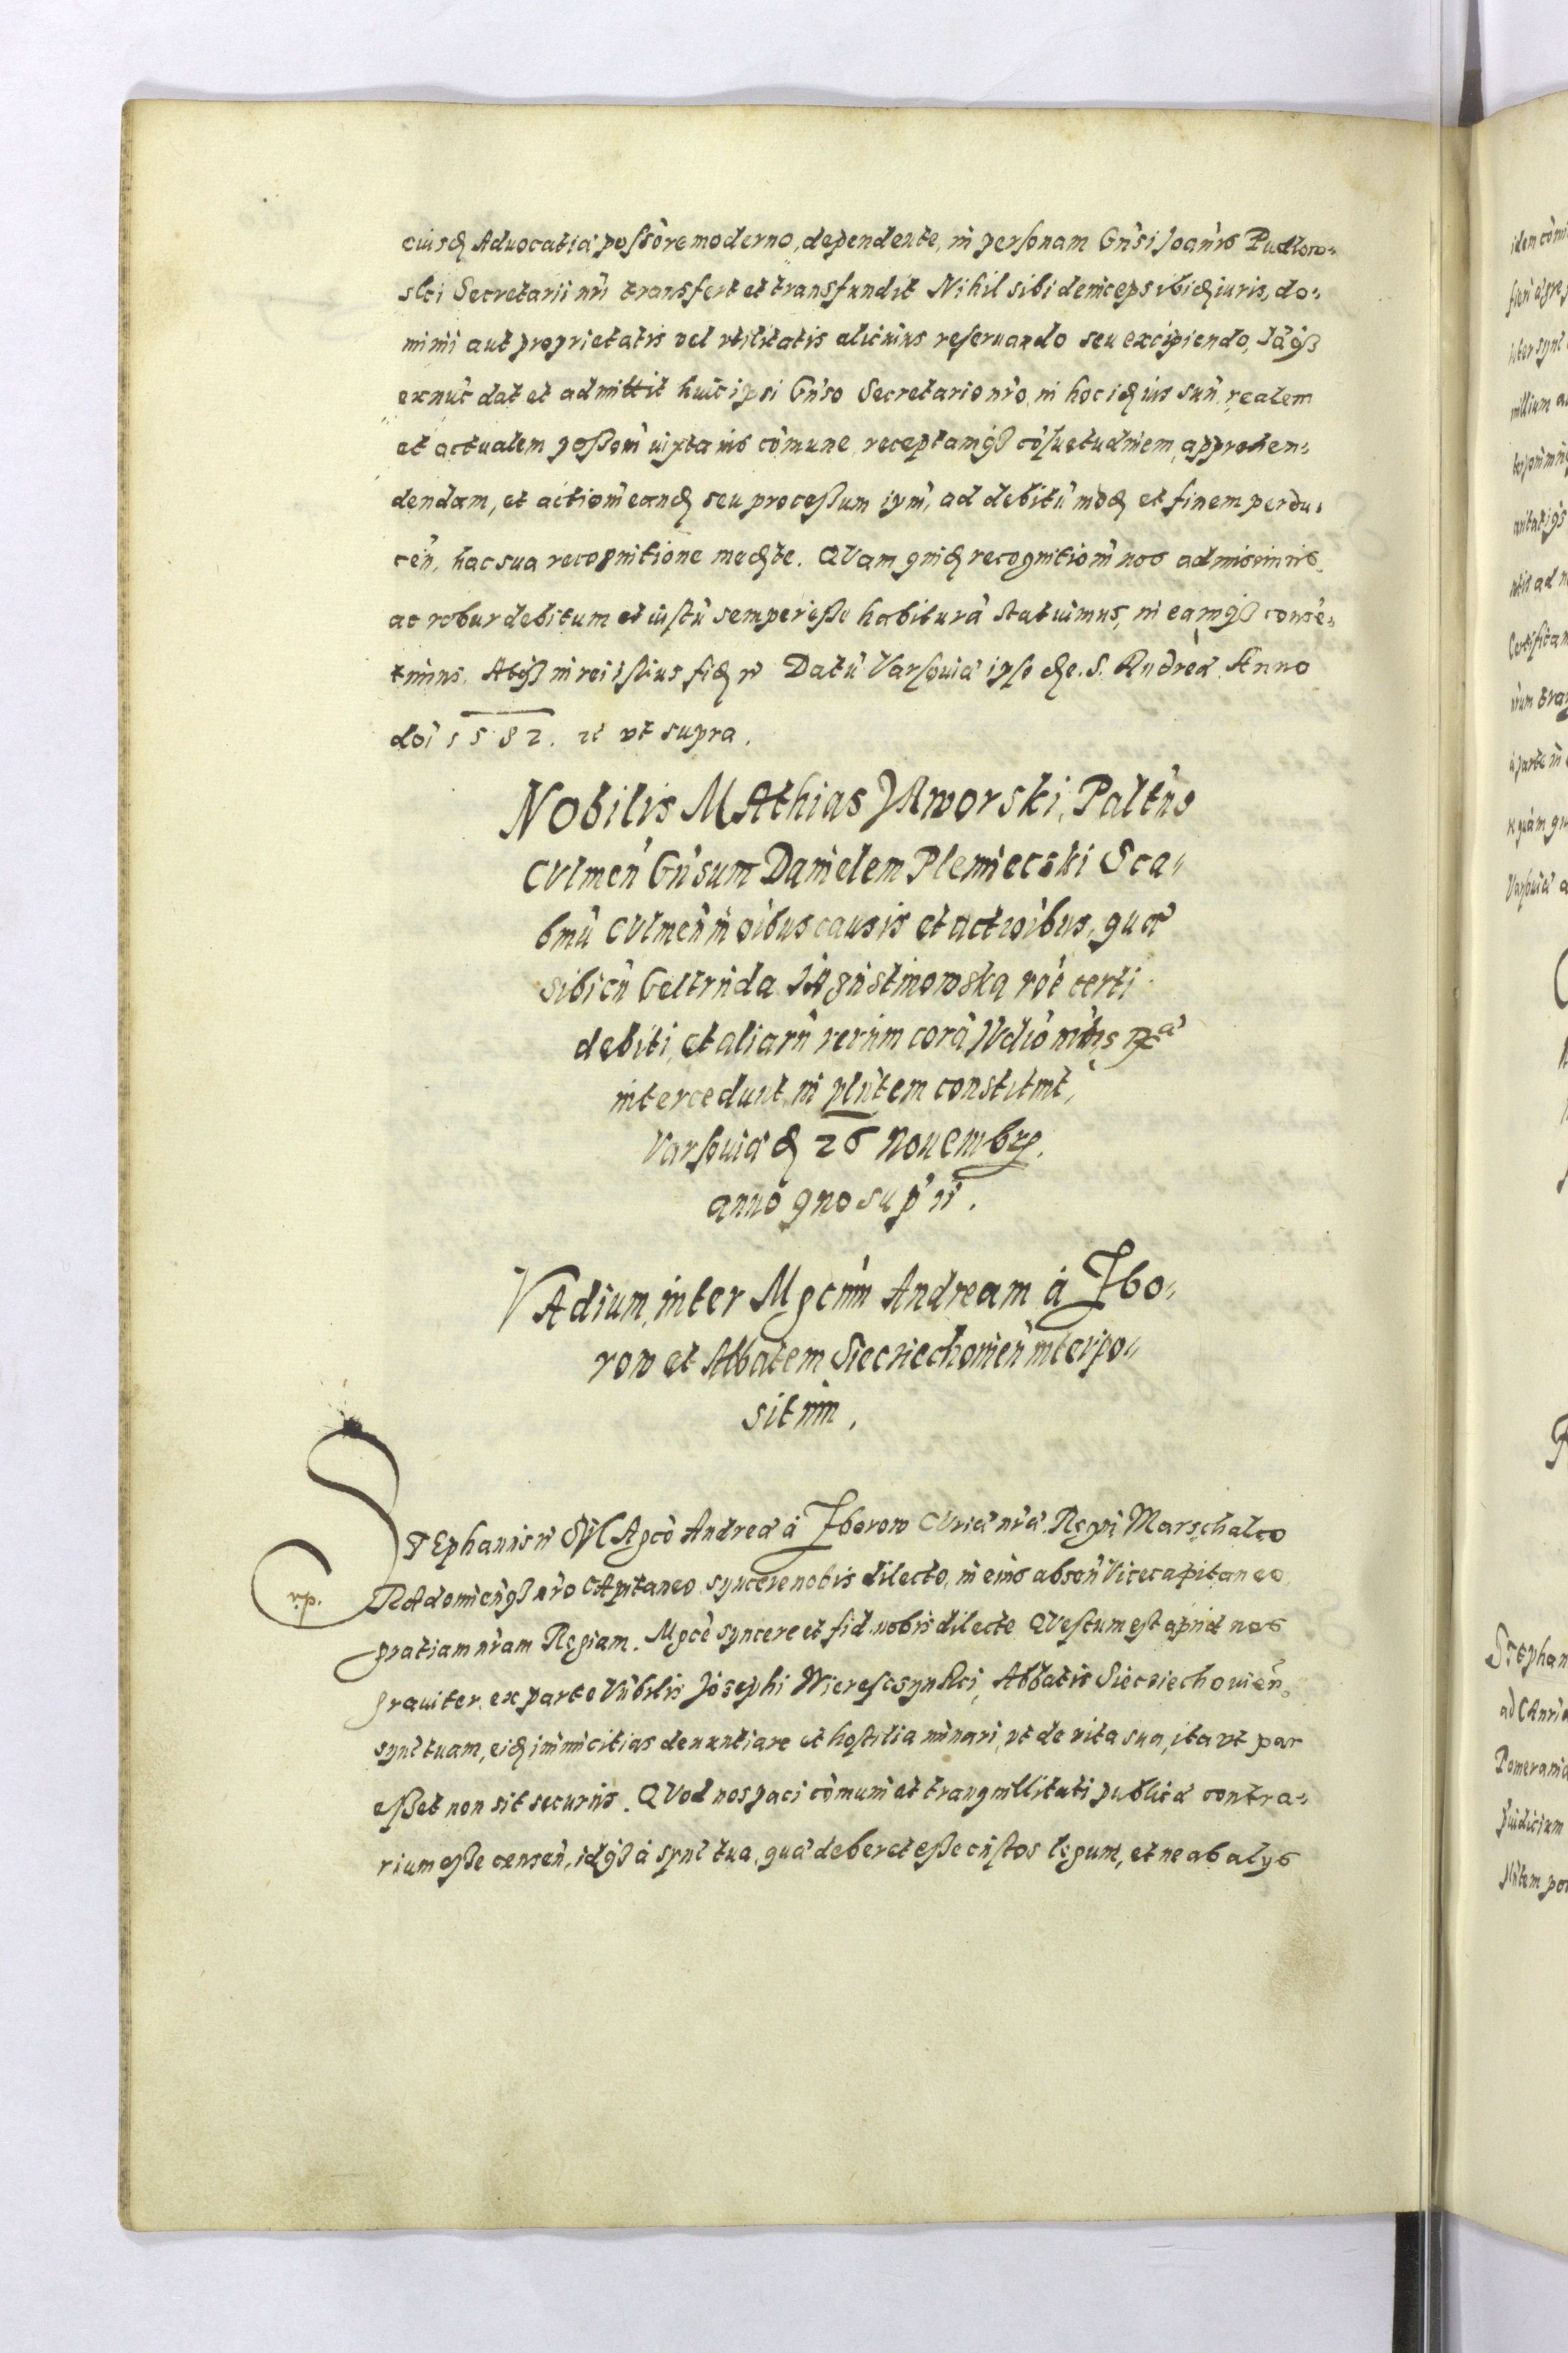 eiusd Advocatiæ possõre moderno, dependente, in personam Gñsi Joañis Pudłow-
ski Secretarii nr̃i transfert et transfundit Nihil sibi deinceps ibid iuris, do-
minii aut proprietatis vel vtilitatis alicuius reseruando seu excipiendo, Iãqз
exnũc dat et admittit huic ipsi Gñso Secretario nr̃o, in hoc id ius suũ realem
et actualem poßoñ iuxta ius cõmune receptamqз cõsuetudinem, apprehen-
dendam, et actioñ eand seu proceßum ipm̃, ad debitũ mod et finem perdu-
ceñ, hac sua recognitione medte. QVam quid recognitioñ nos admisimus
ac robur debitum et iustũ semper eße habiturã statuimus, in eamqз consẽ-
timus. Atqз in rei istius fid ñ Datũ Varsouiæ ipso die. S. Andreæ Anno
doĩ 1582. ĩĩ vt supra.
NObilis MAthias JAworski, Paltñs
CVlmeñ Gñsum Danielem Plemiecski Sca-
bmũ CVlmeñ in oĩbus causis et actioĩbus, quæ
sibi cũ Geltruda IAgustinowska roẽ certi
debiti, et aliarũ rerum corã JVdio
intercedunt, in pleñtem constituit,
Varsouiæ d 26 Nouembr.
anno quo sup̃ ñ.
VAdium, inter Mgcum Andream à Zbo-
row et Abbatem Siecziechouieñ interpo-
situm.
STEphanus ñ MAgco Andreæ à Zborow CVriæ nr̃æ Regni Marschalco
RAdomieñqз nr̃o CApitaneo syncere nobis dilecto, in eius abseñ Vicecapitaneo
v.p.
gratiam nr̃am Regiam. Mgcẽ syncere et fid nobis dilecte QVestum est apud nos
grauiter, ex parte Vñbilis Josephi Wieresczynski, Abbatis Siecziechouieñ,
synct tuam, eid inimicitias denuntiare et hostilia minari, vt de vita sua, ita vt par
eßet non sit securus. QVod nos paci cõmuni et tranquillitati publicæ contra-
rium eße censeñ, idqз à synct tua, quæ deberet eße custos legum, et ne ab alijs